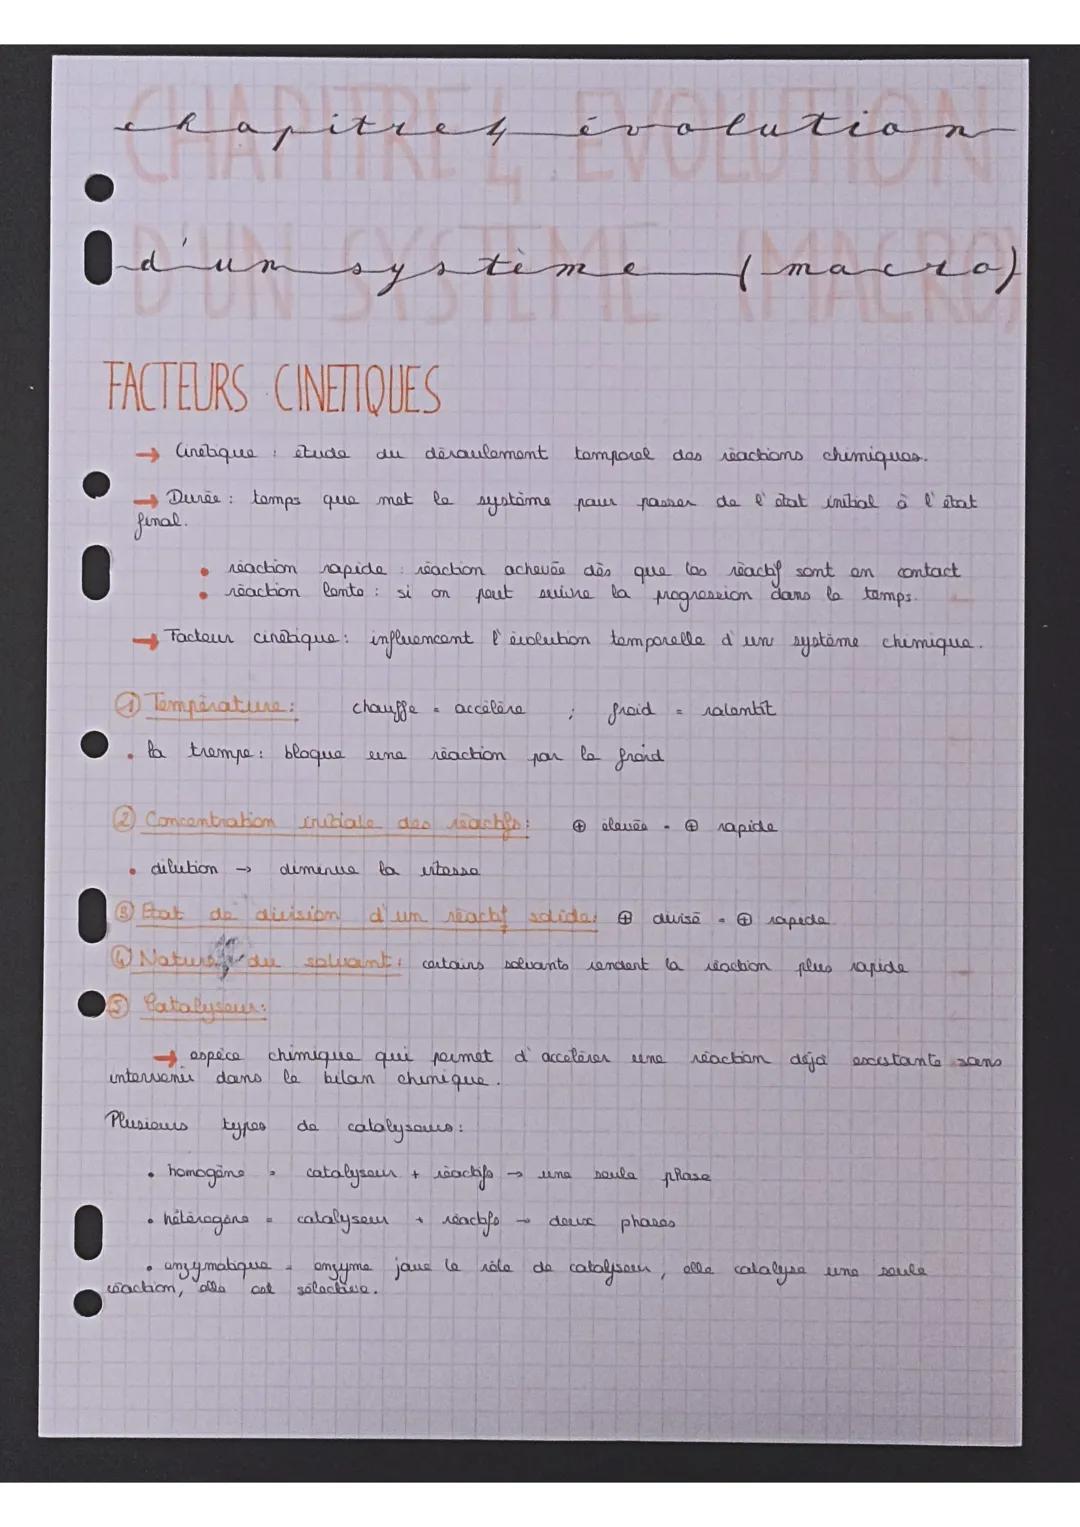 chapitre 4 évolution
CHAPITRE 4 EVOLUTION
d'un système (macro)
D'UN SYSTEME (MACRO)
FACTEURS CINETIQUES
→ Cinétique : étude du déroulement temporel des réactions chimiques.
→ Durée : temps que met le système pour passer de l'état initial à l'état
final.
• réaction rapide : réaction achevée dès que les réactif sont en contact
• réaction lente : si on peut suivre la progression dans le temps.
→ Facteur cinétique : influencent l'évolution temporelle d'un système chimique.
① Température : chauffe = accélère ; froid = ralentit
• la trempe : bloque une réaction par le froid
② Concentration initiale des réactifs : ⊕ élevée = ⊕ rapide
• dilution → diminue la vitesse
③ Etat de division d'un réactif solide : ⊕ divisé = ⊕ rapide
④ Nature du solvant : certains solvants rendent la réaction plus rapide
⑤ Catalyseur :
→ espèce chimique qui permet d'accélérer une réaction déjà existante sans
intervenir dans le bilan chimique.
Plusieurs types de catalyseurs :
• homogène = catalyseur + réactifs → une seule phase
• hétérogène = catalyseur + réactifs → deux phases
• enzymatique = enzyme joue le rôle de catalyseur, elle catalyse une seule
réaction, elle est sélective.